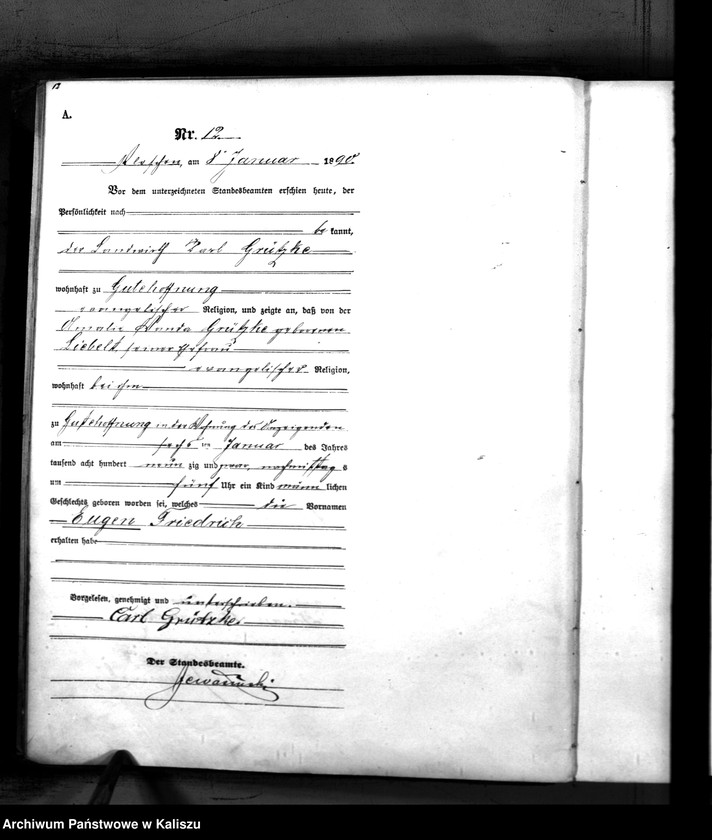 12
A.
Nr. 12.
Pleschen, am 8t Januar 1890.
Vor dem unterzeichneten Standesbeamten erschien heute, der
Persönlichkeit nach
be kannt,
der Landwirth Carl Grützke
wohnhaft zu Gutehoffnung
evangelischer Religion, und zeigte an, daß von der
Amalie Wanda Grützke geborenen
Liebelt, seiner Ehefrau
evangelischer Religion,
wohnhaft bei ihm
zu Gutehoffnung in der Wohnung des Anzeigenden
am sechs ten Januar des Jahres
tausend acht hundert neun zig und zwar nachmittag s
um fünf Uhr ein Kind männ lichen
Geschlechts geboren worden sei, welches die Vornamen
Eugen Friedrich
erhalten habe
Vorgelesen, genehmigt und unterschrieben.
Carl Grützke.
Der Standesbeamte.
Archiwum Państwowe w Kaliszu